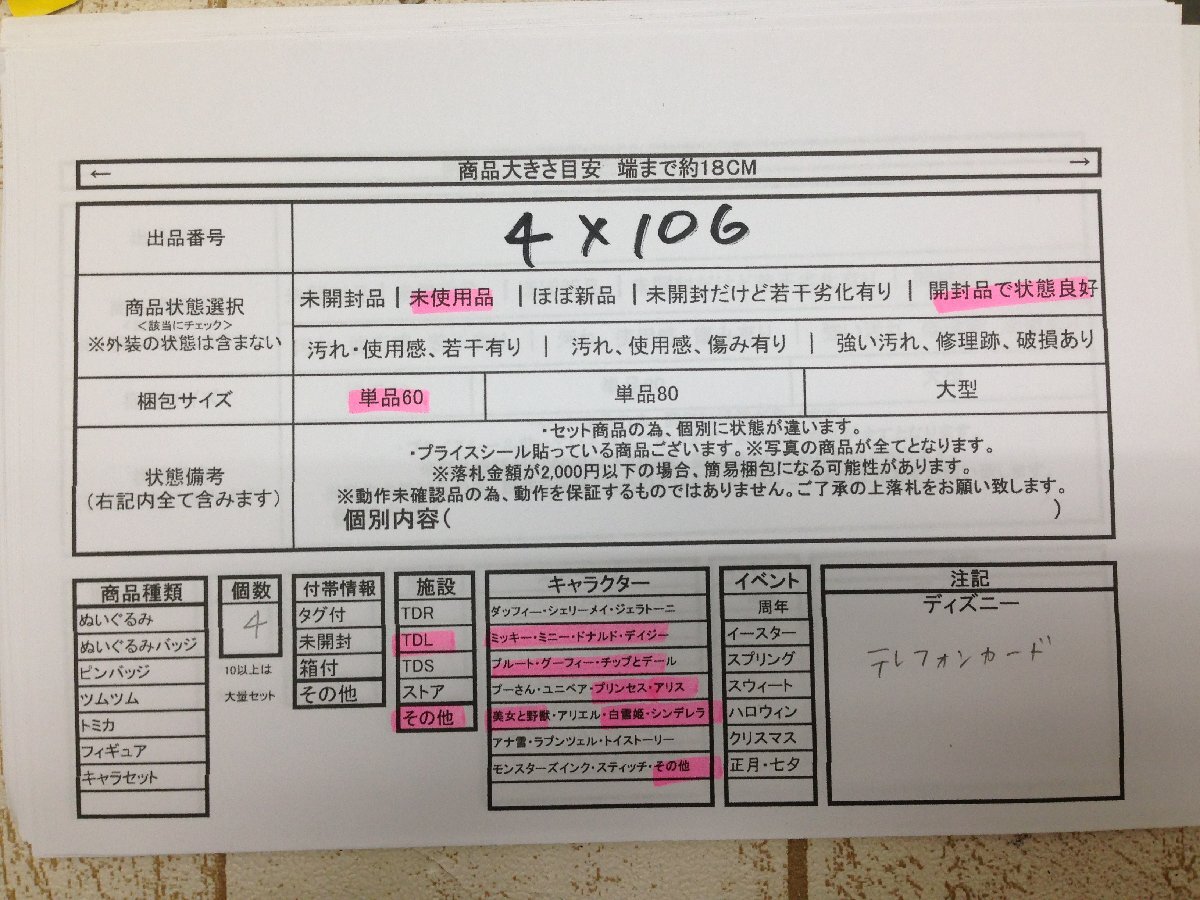 ← 商品大きさ目安 端まで約18CM →
出品番号 4×106
商品状態選択
<該当にチェック>
※外装の状態は含まない
未開封品 | 未使用品 | ほぼ新品 | 未開封だけど若干劣化有り | 開封品で状態良好
汚れ・使用感、若干有り | 汚れ、使用感、傷み有り | 強い汚れ、修理跡、破損あり
梱包サイズ 単品60 単品80 大型
状態備考
(右記内全て含みます)
・セット商品の為、個別に状態が違います。
・プライスシール貼っている商品ございます。※写真の商品が全てとなります。
※落札金額が2,000円以下の場合、簡易梱包になる可能性があります。
※動作未確認品の為、動作を保証するものではありません。ご了承の上落札をお願い致します。
個別内容( )
商品種類
ぬいぐるみ
ぬいぐるみバッジ
ピンバッジ
ツムツム
トミカ
フィギュア
キャラセット
個数
4
10以上は
大量セット
付帯情報
タグ付
未開封
箱付
その他
施設
TDR
TDL
TDS
ストア
その他
キャラクター
ダッフィー・シェリーメイ・ジェラトーニ
ミッキー・ミニー・ドナルド・デイジー
プルート・グーフィー・チップとデール
プーさん・ユニベア・プリンセス・アリス
美女と野獣・アリエル・白雪姫・シンデレラ
アナ雪・ラプンツェル・トイストーリー
モンスターズインク・スティッチ・その他
イベント
周年
イースター
スプリング
スウィート
ハロウィン
クリスマス
正月・七夕
注記
ディズニー
テレフォンカード